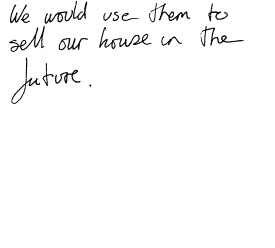 We would use them to
sell our house in the
future.